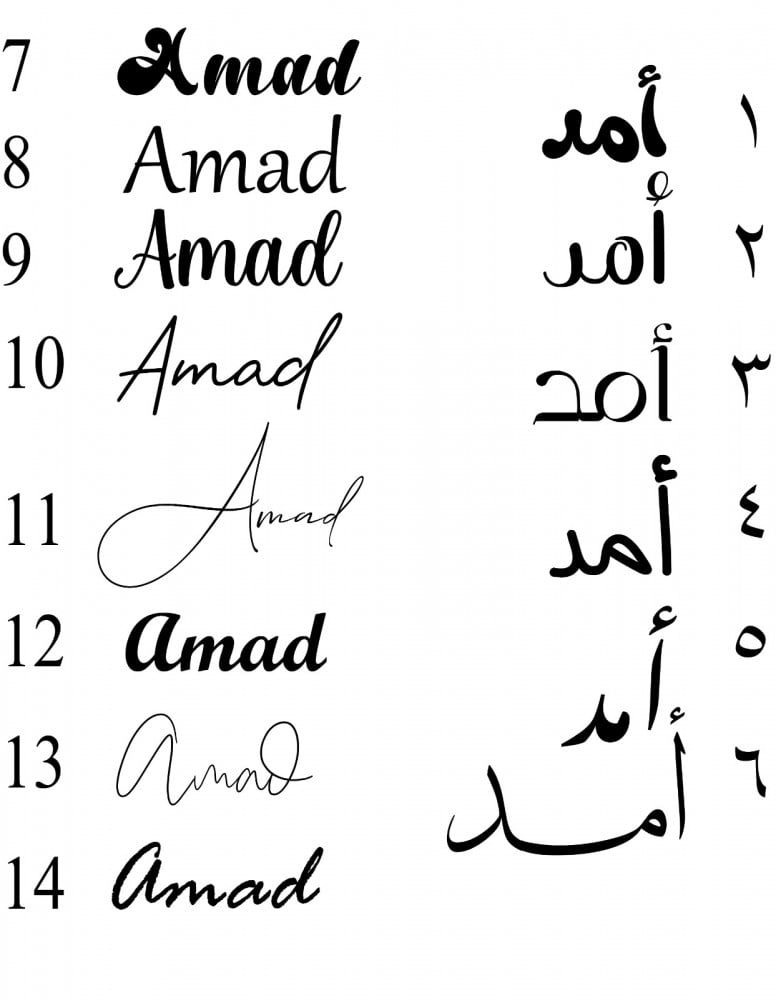 7 Amad
8 Amad
9 Amad
10 Amad
11 Amad
12 Amad
13 Amad
14 Amad
أمد ١
أمد ٢
أمد ٣
أمد ٤
أمد ٥
أمد ٦